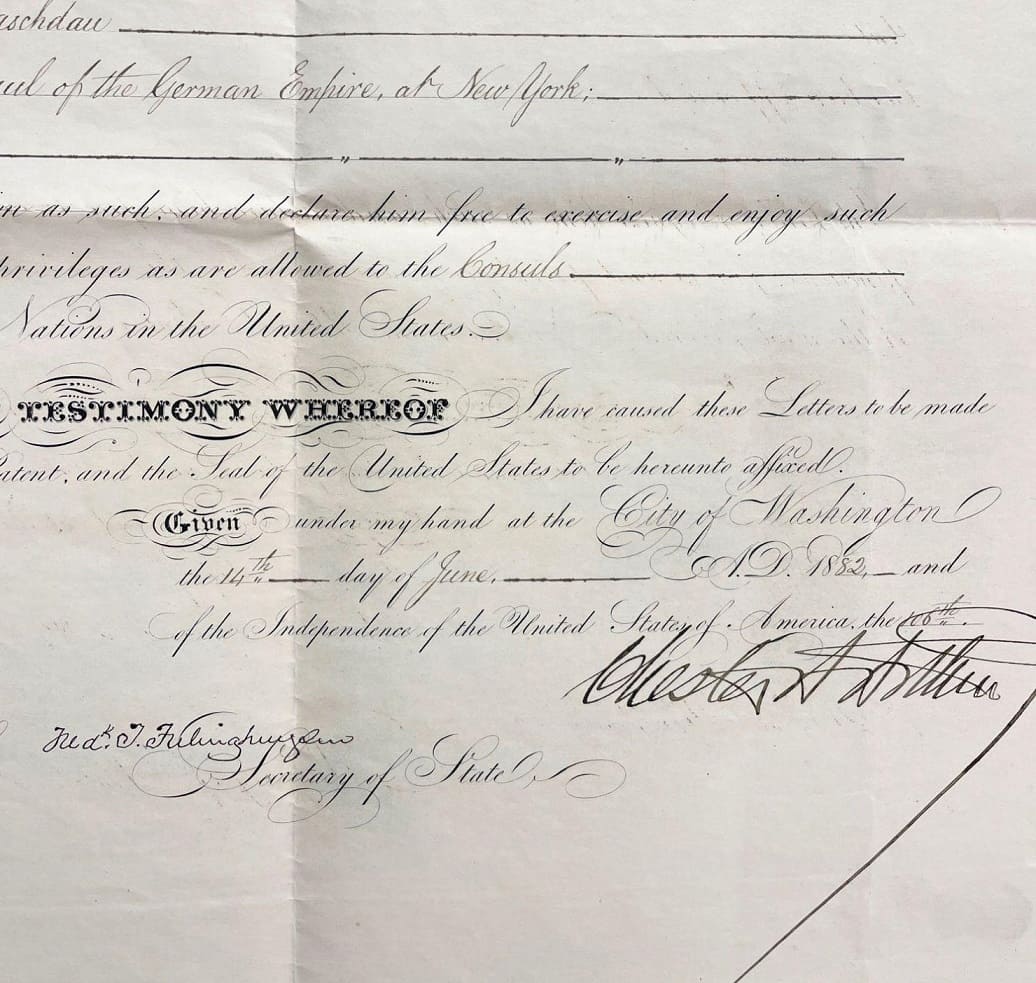 aschdau
ul of the German Empire, at New York;
" "
n as such; and declare him free to exercise and enjoy such
privileges as are allowed to the Consuls
Nations in the United States.
TESTIMONY WHEREOF I have caused these Letters to be made
Patent, and the Seal of the United States to be hereunto affixed.
Given under my hand at the City of Washington
the 14th day of June, A.D. 1882, and
of the Independence of the United States of America, the 106th.
Chester A Arthur
Fredk. T. Frelinghuysen
Secretary of State.